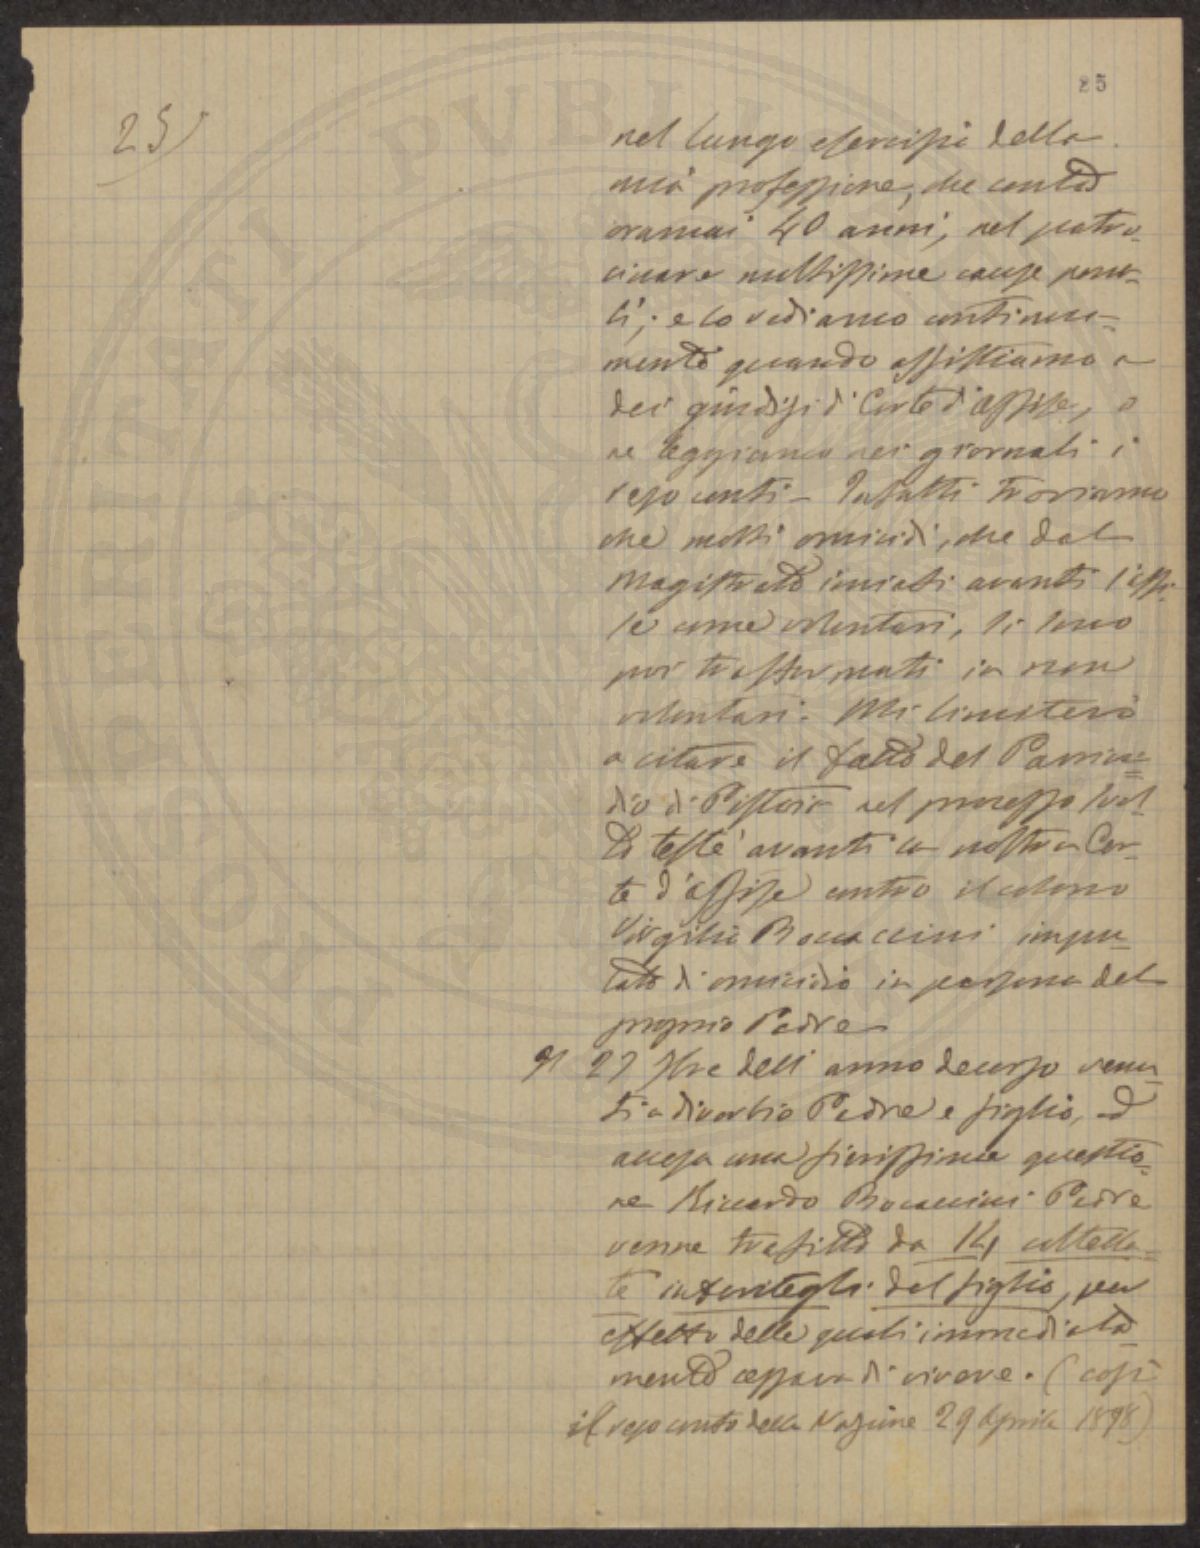 25
25)
nel lungo esercizio della
mia professione, che conta
oramai 40 anni, nel patro-
cinare moltissime cause pena-
li; e lo vediamo continua-
mente quando assistiamo a
dei giudizi di Corte d'assise, o
ne leggiamo nei giornali i
resoconti - Infatti troviamo
che molti omicidi, che dal
Magistrato inviati avanti l'assi-
se come volontari, si sono
poi trasformati in non
volontari. Mi limiterò
a citare il fatto del Parrici-
dio di Pistoia nel processo svol-
to testé avanti la nostra Cor-
te d'assise contro il colono
Virgilio Bocaccini impu-
tato di omicidio in persona del
proprio Padre
Il 27 7bre dell'anno decorso venu-
ti a diverbio Padre e figlio, ed
accesa una fierissima questio-
ne Riccardo Bocaccini Padre
venne trafitto da 14 coltella-
te infertegli dal figlio, per
effetto delle quali immediata
mente cessava di vivere. (così
il resoconto della Nazione 29 Aprile 1898)